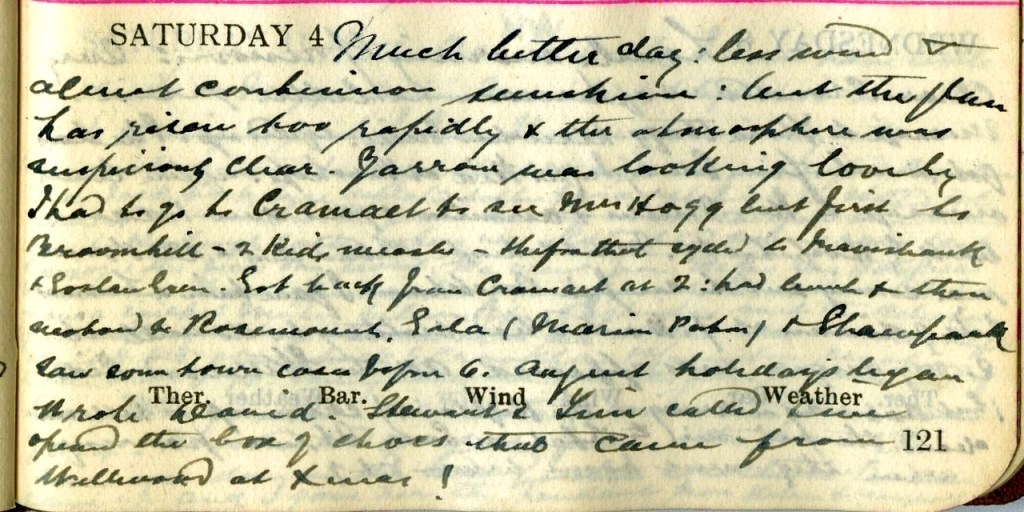 SATURDAY 4 Much better day: less wind &
almost continuous sunshine: but the glass
has risen too rapidly & the atmosphere was
suspiciously clear. Yarrow was looking lovely
I had to go to Cramalt to see Mrs Hogg but first to
Broomhill - 2 Kids measles - before that cycled to
& . Got back from Cramalt at 2: had lunch & then
motored to Rosemount, (Marion) & Shawpark
Saw some town cases before 6. August holidays began
Ther. Bar. Wind Weather
Wrote David. Stewart & called & we
opened the box of chocs that came from 121
Wellwood at Xmas!